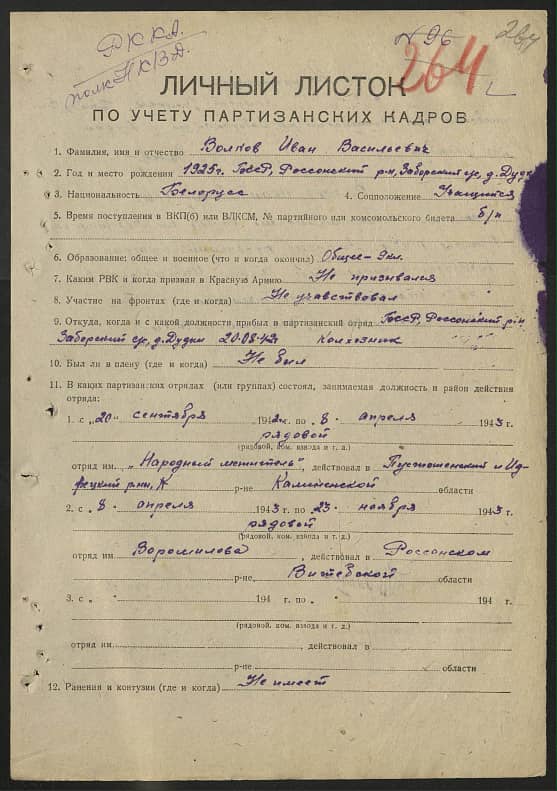 РККА.
полк НКВД.
№ 96
264
264
ЛИЧНЫЙ ЛИСТОК
ПО УЧЕТУ ПАРТИЗАНСКИХ КАДРОВ
1. Фамилия, имя и отчество Волков Иван Васильевич
2. Год и место рождения 1925г. БССР, Россонский р-н, Заборский с/с, д. Дудки
3. Национальность Белорусс 4. Соцположение Учащийся
5. Время поступления в ВКП(б) или ВЛКСМ, № партийного или комсомольского билета б/п
6. Образование: общее и военное (что и когда окончил) Общее - 9кл.
7. Каким РВК и когда призван в Красную Армию Не призывался
8. Участие на фронтах (где и когда) Не участвовал
9. Откуда, когда и с какой должности прибыл в партизанский отряд БССР, Россонский р-н
Заборский с/с, д. Дудки 20.08.42г. Колхозник
10. Был ли в плену (где и когда) Не был
11. В каких партизанских отрядах (или группах) состоял, занимаемая должность и район действия
отряда:
1. с „20" сентября 1942г. по „8. апреля 1943 г.
рядовой
(рядовой, ком. взвода и т. д.)
отряд им. „Народный мститель", действовал в Пустошенский и Ид-
рецкий р-ны, р-не Калининской области
2. с „8. апреля 1943 г. по „23. ноября 1943 г.
рядовой
(рядовой, ком. взвода и т. д.)
отряд им. Ворошилова, действовал в Россонском
р-не, Витебской области
3. с „ " 194 г. по „ " 194 г.
(рядовой, ком. взвода и т. д.)
отряд им. , действовал в
р-не области
12. Ранения и контузии (где и когда) Не имеет